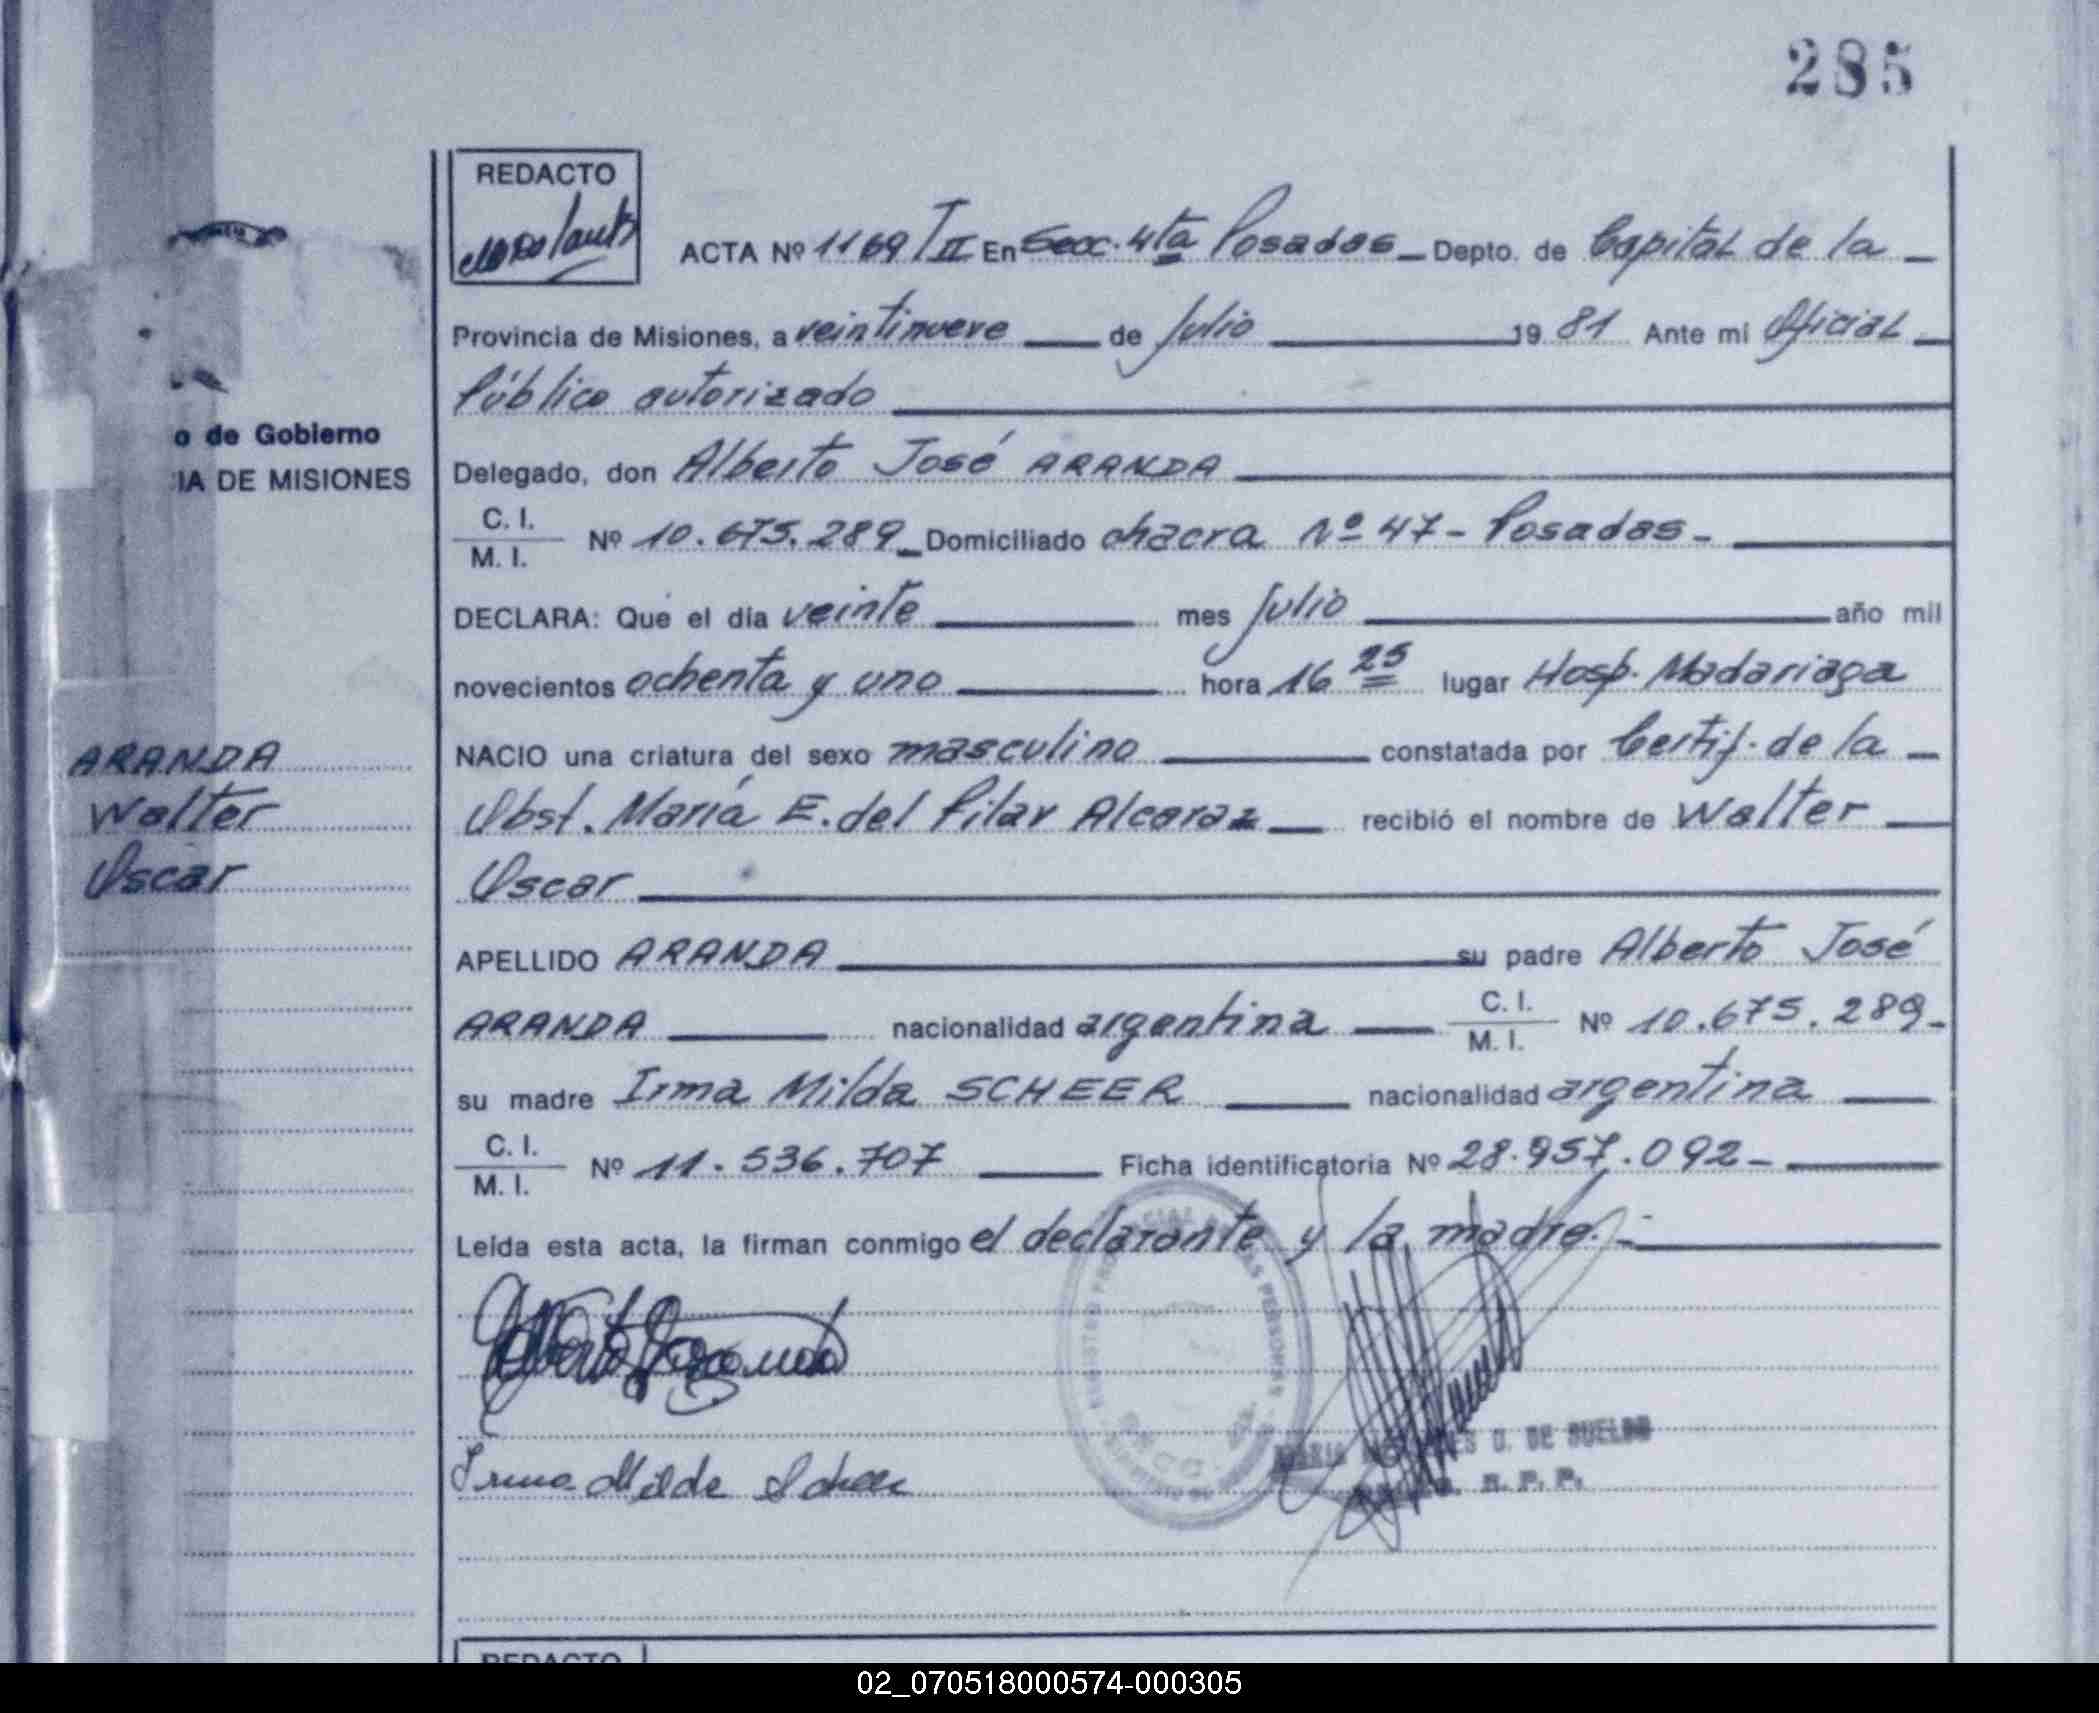 285
REDACTO
ACTA Nº 1169/II En Secc. 4ta Posadas Depto. de Capital de la
Provincia de Misiones, a veintinueve de Julio 19 81 Ante mi Oficial
Público autorizado
o de Gobierno
IA DE MISIONES
Delegado, don Alberto José ARANDA
C. I.
M. I. Nº 10.675.289 Domiciliado chacra Nº 47 - Posadas -
DECLARA: Que el día veinte mes Julio año mil
novecientos ochenta y uno hora 16 25 lugar Hosp. Madariaga
ARANDA
Walter
Oscar
NACIO una criatura del sexo masculino constatada por Certif. de la
Obst. María E. del Pilar Alcaraz recibió el nombre de Walter
Oscar
APELLIDO ARANDA su padre Alberto José
ARANDA nacionalidad argentina C. I. M. I. Nº 10.675.289-
su madre Irma Milda SCHEER nacionalidad argentina
C. I.
M. I. Nº 11.536.707 Ficha identificatoria Nº 28.957.092-
Leída esta acta, la firman conmigo el declarante y la madre.-
Irma Milda Scheer
MARIA D. DE SUELDO
R. P. P.
REDACTO
02_070518000574-000305